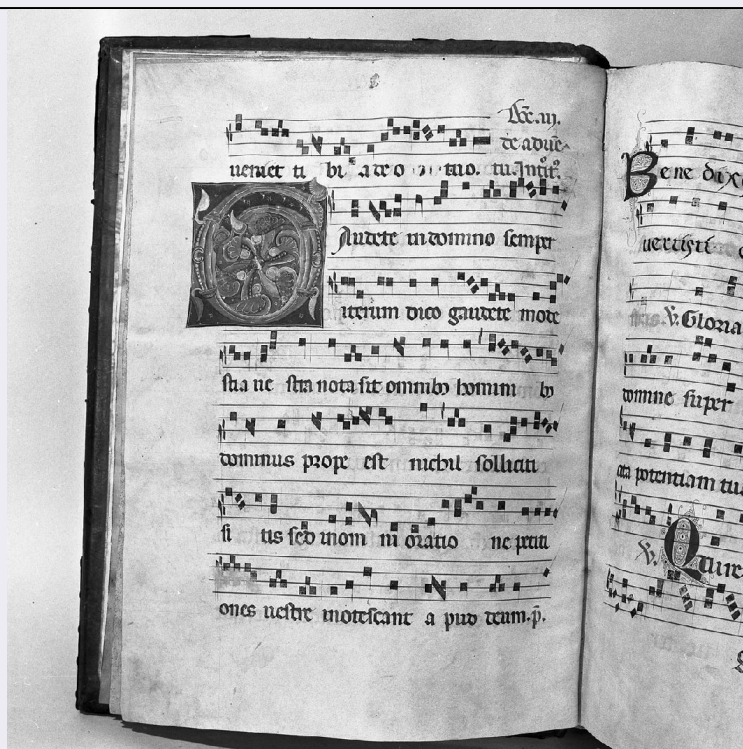 Dce .iij.
de adue
ueniet ti bi a deo tuo. tu. Introit.
Audete in domino semper
iterum dico gaudete mode
stia ue stra nota sit omnibꝫ homini bꝫ
dominus prope est nichil solliciti
si tis sed in om ni oratio ne petiti
ones uestre innotescant a pud deum. p̄.
Bene dix
uertisti
℣. Gloria
domine super
cita potentiam tu
℣. Qui re